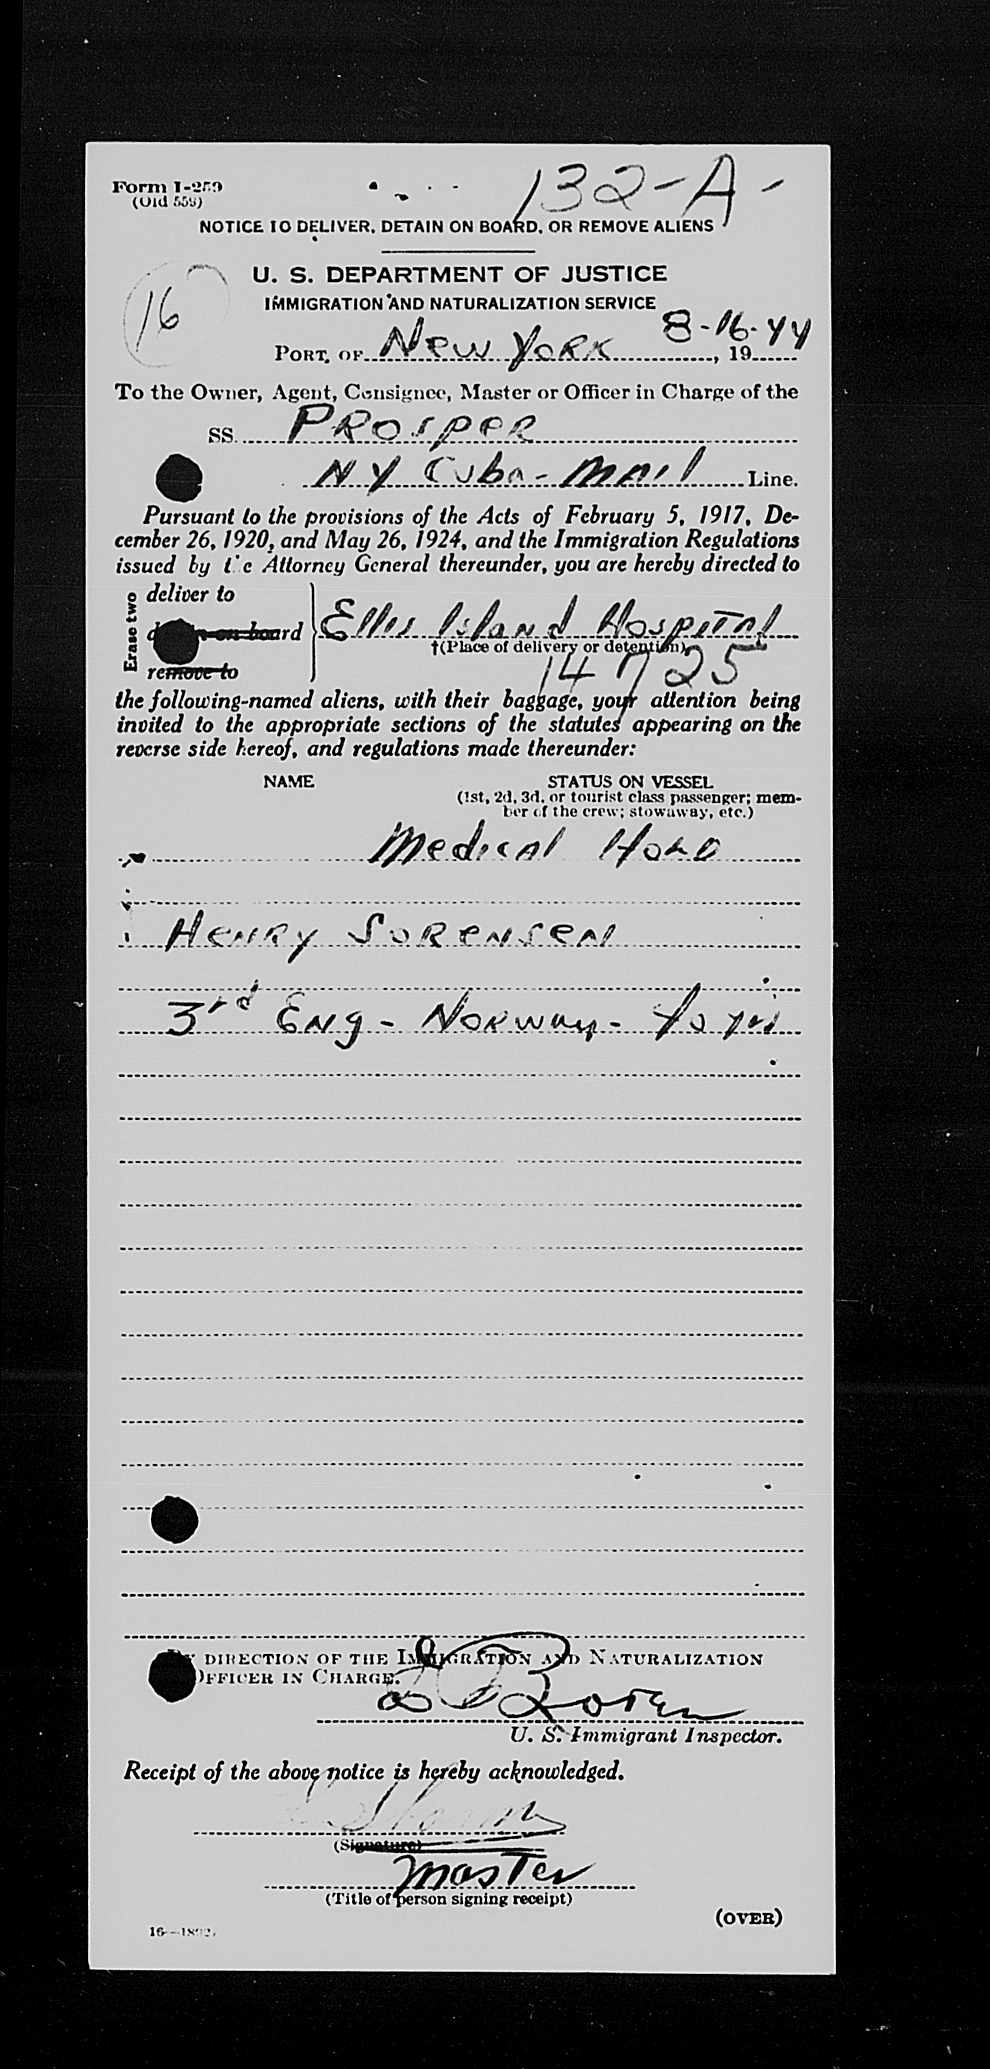 Form I-259
(Old 559)
132-A-
NOTICE TO DELIVER, DETAIN ON BOARD, OR REMOVE ALIENS
U. S. DEPARTMENT OF JUSTICE
IMMIGRATION AND NATURALIZATION SERVICE
16
PORT OF New York 8-16-44, 19
To the Owner, Agent, Consignee, Master or Officer in Charge of the
SS. Prosper
NY Cuba-Mail Line.
Pursuant to the provisions of the Acts of February 5, 1917, De-
cember 26, 1920, and May 26, 1924, and the Immigration Regulations
issued by the Attorney General thereunder, you are hereby directed to
Erase two
deliver to
on board
remove to
Ellis Island Hospital
†(Place of delivery or detention)
14725
the following-named aliens, with their baggage, your attention being
invited to the appropriate sections of the statutes appearing on the
reverse side hereof, and regulations made thereunder:
NAME STATUS ON VESSEL
(1st, 2d, 3d, or tourist class passenger; mem-
ber of the crew; stowaway, etc.)
Medical Hold
Henry Sorensen
3rd Eng - Norway -
BY DIRECTION OF THE IMMIGRATION AND NATURALIZATION
OFFICER IN CHARGE.
U. S. Immigrant Inspector.
Receipt of the above notice is hereby acknowledged.
(Signature)
Master
(Title of person signing receipt)
(OVER)